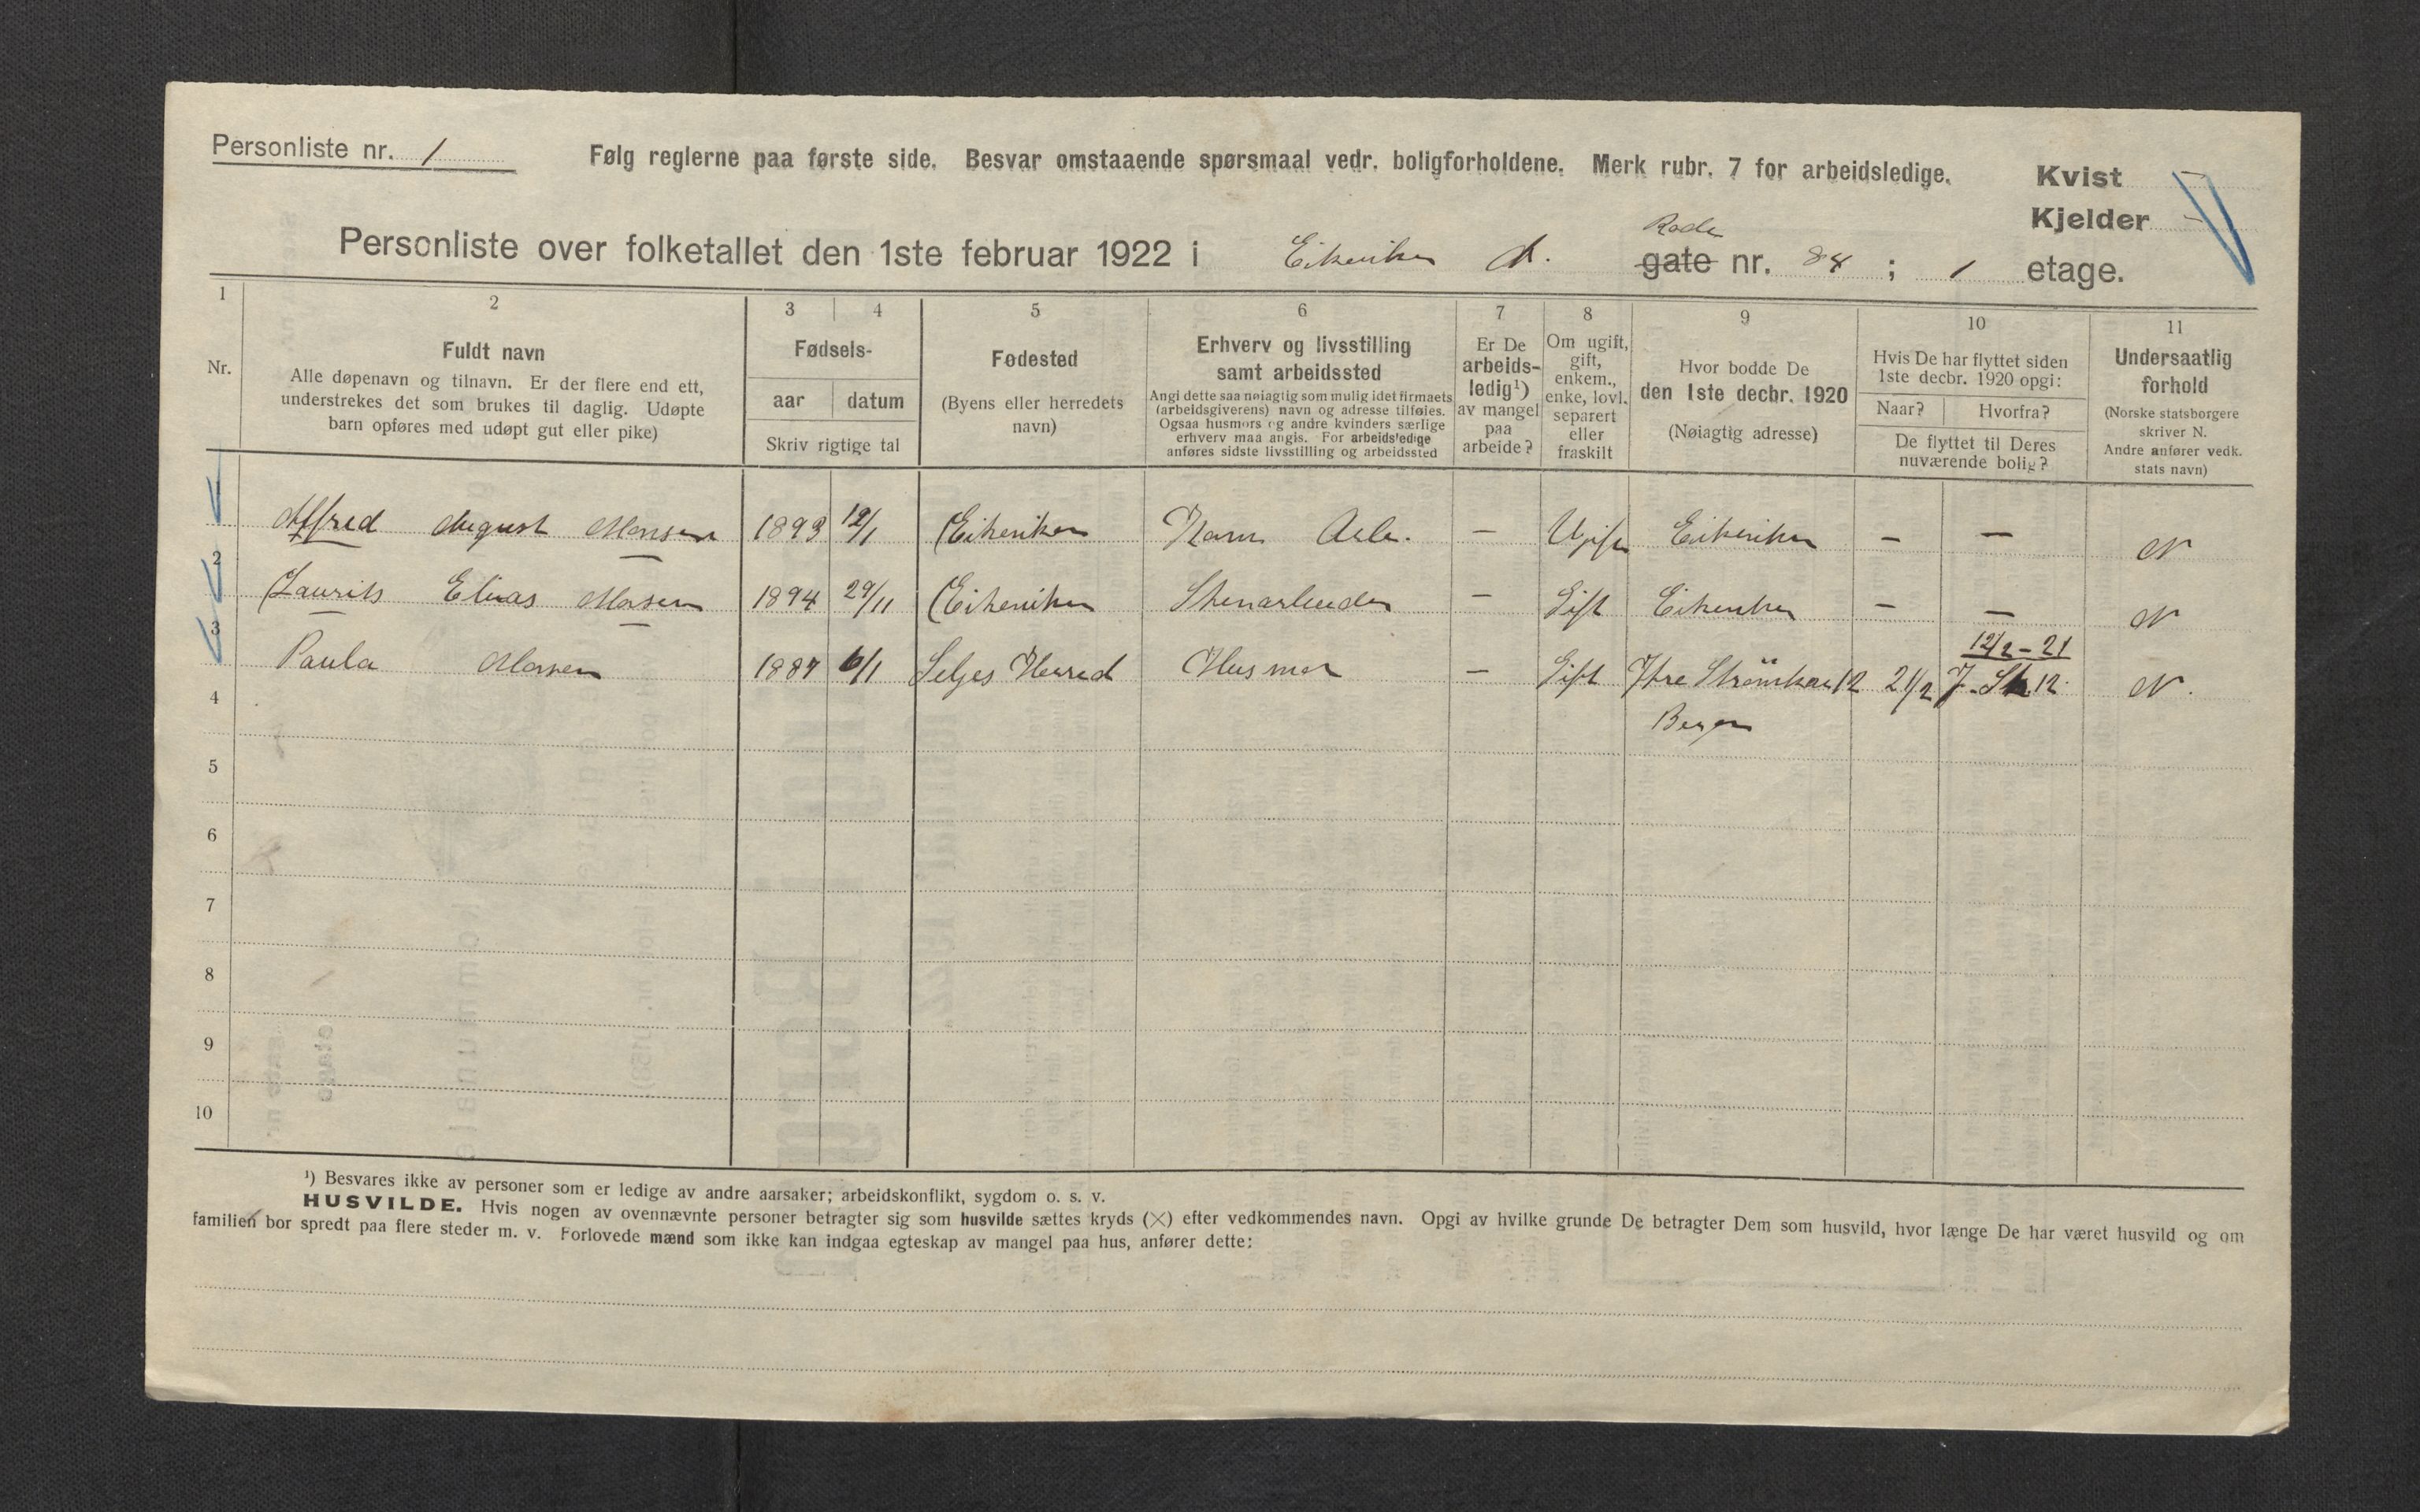 Personliste nr. 1
Følg reglerne paa første side. Besvar omstaaende spørsmaal vedr. boligforholdene. Merk rubr. 7 for arbeidsledige.
Kvist
Kjelder
Rode
Personliste over folketallet den 1ste februar 1922 i Eikeviken A. gate nr. 84 ; 1 etage.
1 2 3 4 5 6 7 8 9 10 11
Nr.
Fuldt navn
Alle døpenavn og tilnavn. Er der flere end ett,
understrekes det som brukes til daglig. Udøpte
barn opføres med udøpt gut eller pike)
Fødsels-
aar datum
Skriv rigtige tal
Fødested
(Byens eller herredets
navn)
Erhverv og livsstilling
samt arbeidssted
Angi dette saa nøiagtig som mulig idet firmaets
(arbeidsgiverens) navn og adresse tilføies.
Ogsaa husmors og andre kvinders særlige
erhverv maa angis. For arbeidsledige
anføres sidste livsstilling og arbeidssted
Er De
arbeids-
ledig¹)
av mangel
paa
arbeide?
Om ugift,
gift,
enkem.,
enke, lovl.
separert
eller
fraskilt
Hvor bodde De
den 1ste decbr. 1920
(Nøiagtig adresse)
Hvis De har flyttet siden
1ste decbr. 1920 opgi:
Naar? Hvorfra?
De flyttet til Deres
nuværende bolig?
Undersaatlig
forhold
(Norske statsborgere
skriver N.
Andre anfører vedk.
stats navn)
1 Alfred August Monsen 1893 12/1 Eikeviken Kom. Arb. — Ugift Eikeviken — — N
2 Laurits Elias Monsen 1894 29/11 Eikeviken Stenarbeider — Gift Eikeviken — — N
12/2-21
3 Paula Monsen 1887 6/1 Seljes Herred Husmor — Gift Ytre Strömkai 12 21/2 Y. St. 12 N.
4 Bergen
5
6
7
8
9
10
¹) Besvares ikke av personer som er ledige av andre aarsaker; arbeidskonflikt, sygdom o. s. v.
HUSVILDE. Hvis nogen av ovennævnte personer betragter sig som husvilde sættes kryds (×) efter vedkommendes navn. Opgi av hvilke grunde De betragter Dem som husvild, hvor længe De har været husvild og om
familien bor spredt paa flere steder m. v. Forlovede mænd som ikke kan indgaa egteskap av mangel paa hus, anfører dette: